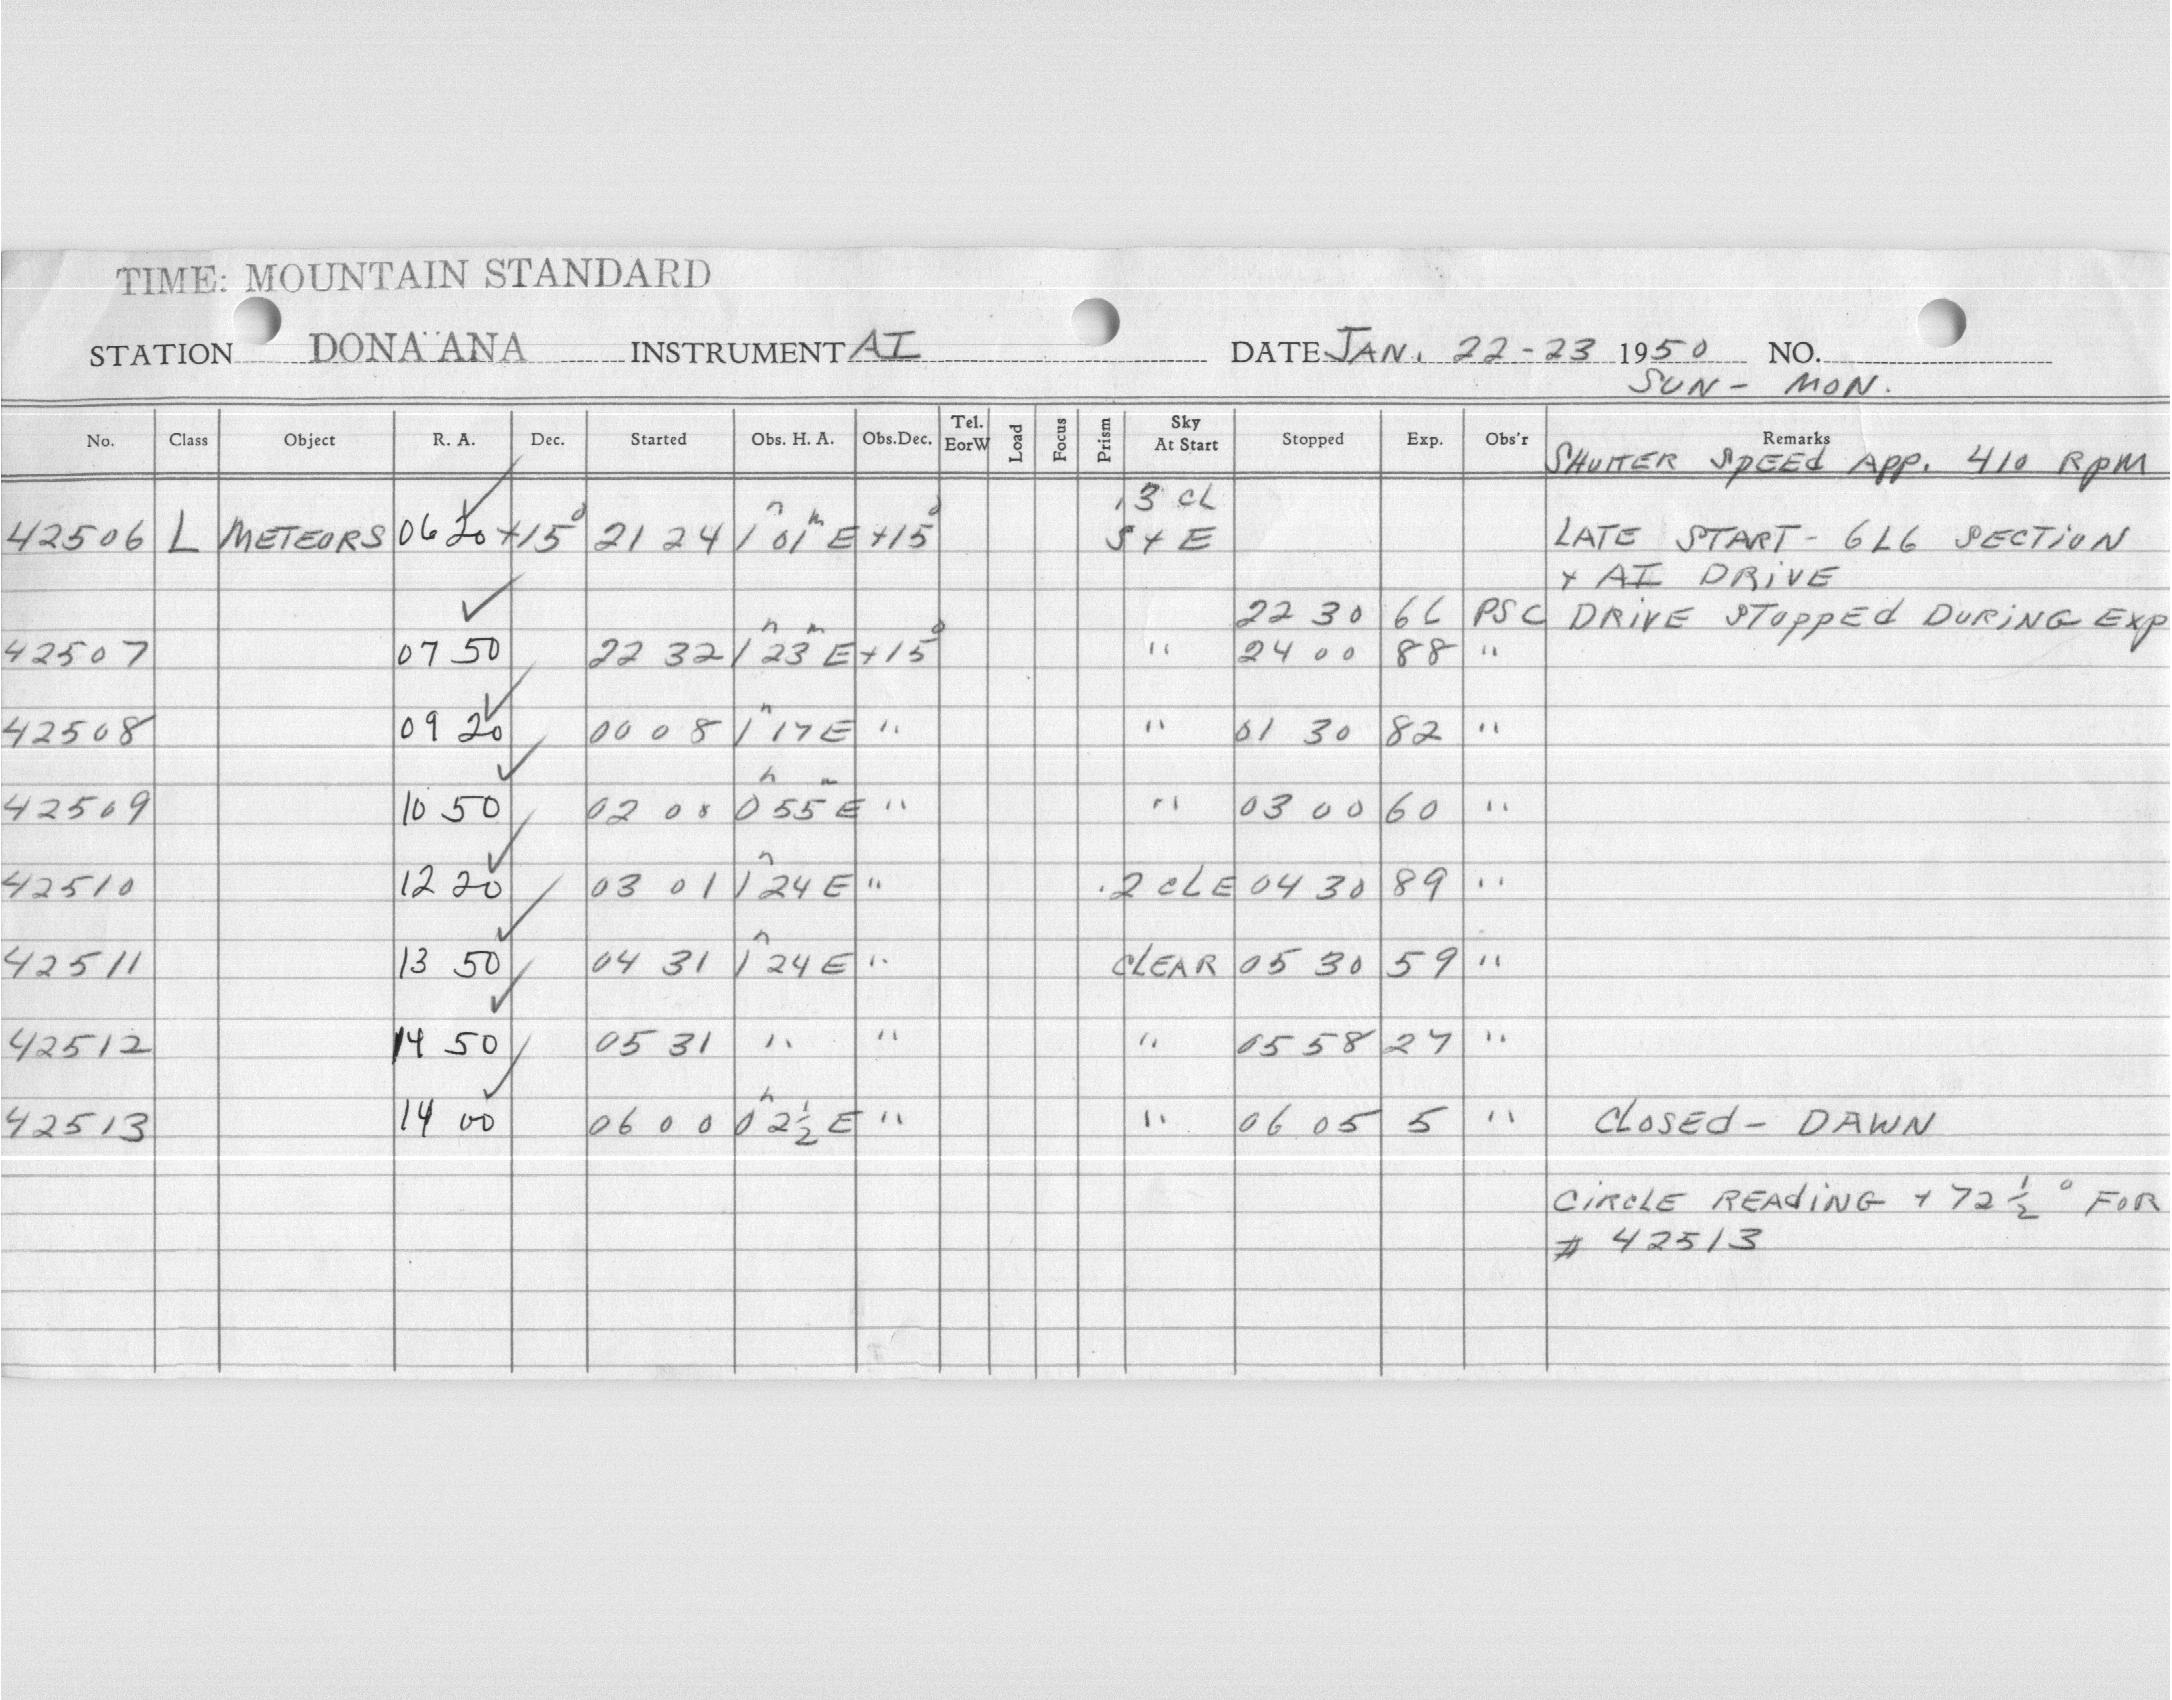 TIME: MOUNTAIN STANDARD
STATION DONA ANA INSTRUMENT AI DATE JAN. 22-23 1950 NO.
SUN - MON.
No. Class Object R. A. Dec. Started Obs. H. A. Obs.Dec. Tel. EorW Load Focus Prism Sky At Start Stopped Exp. Obs'r Remarks
SHUTTER SPEED APP. 410 RPM
.3 CL
42506 L METEORS 06 20 +15° 21 24 1h 01m E +15° S + E LATE START - 6L6 SECTION
+ AI DRIVE
22 30 66 PSC DRIVE STOPPED DURING EXP
42507 07 50 22 32 1h 23m E +15° " 24 00 88 "
42508 09 20 00 08 1h 17 E " " 01 30 82 "
42509 10 50 02 00 0h 55m E " " 03 00 60 "
42510 12 20 03 01 1h 24 E " .2 CL E 04 30 89 "
42511 13 50 04 31 1h 24 E " CLEAR 05 30 59 "
42512 14 50 05 31 " " " 05 58 27 "
42513 14 00 06 00 0h 2½ E " " 06 05 5 " CLOSED - DAWN
CIRCLE READING + 72½° FOR
# 42513